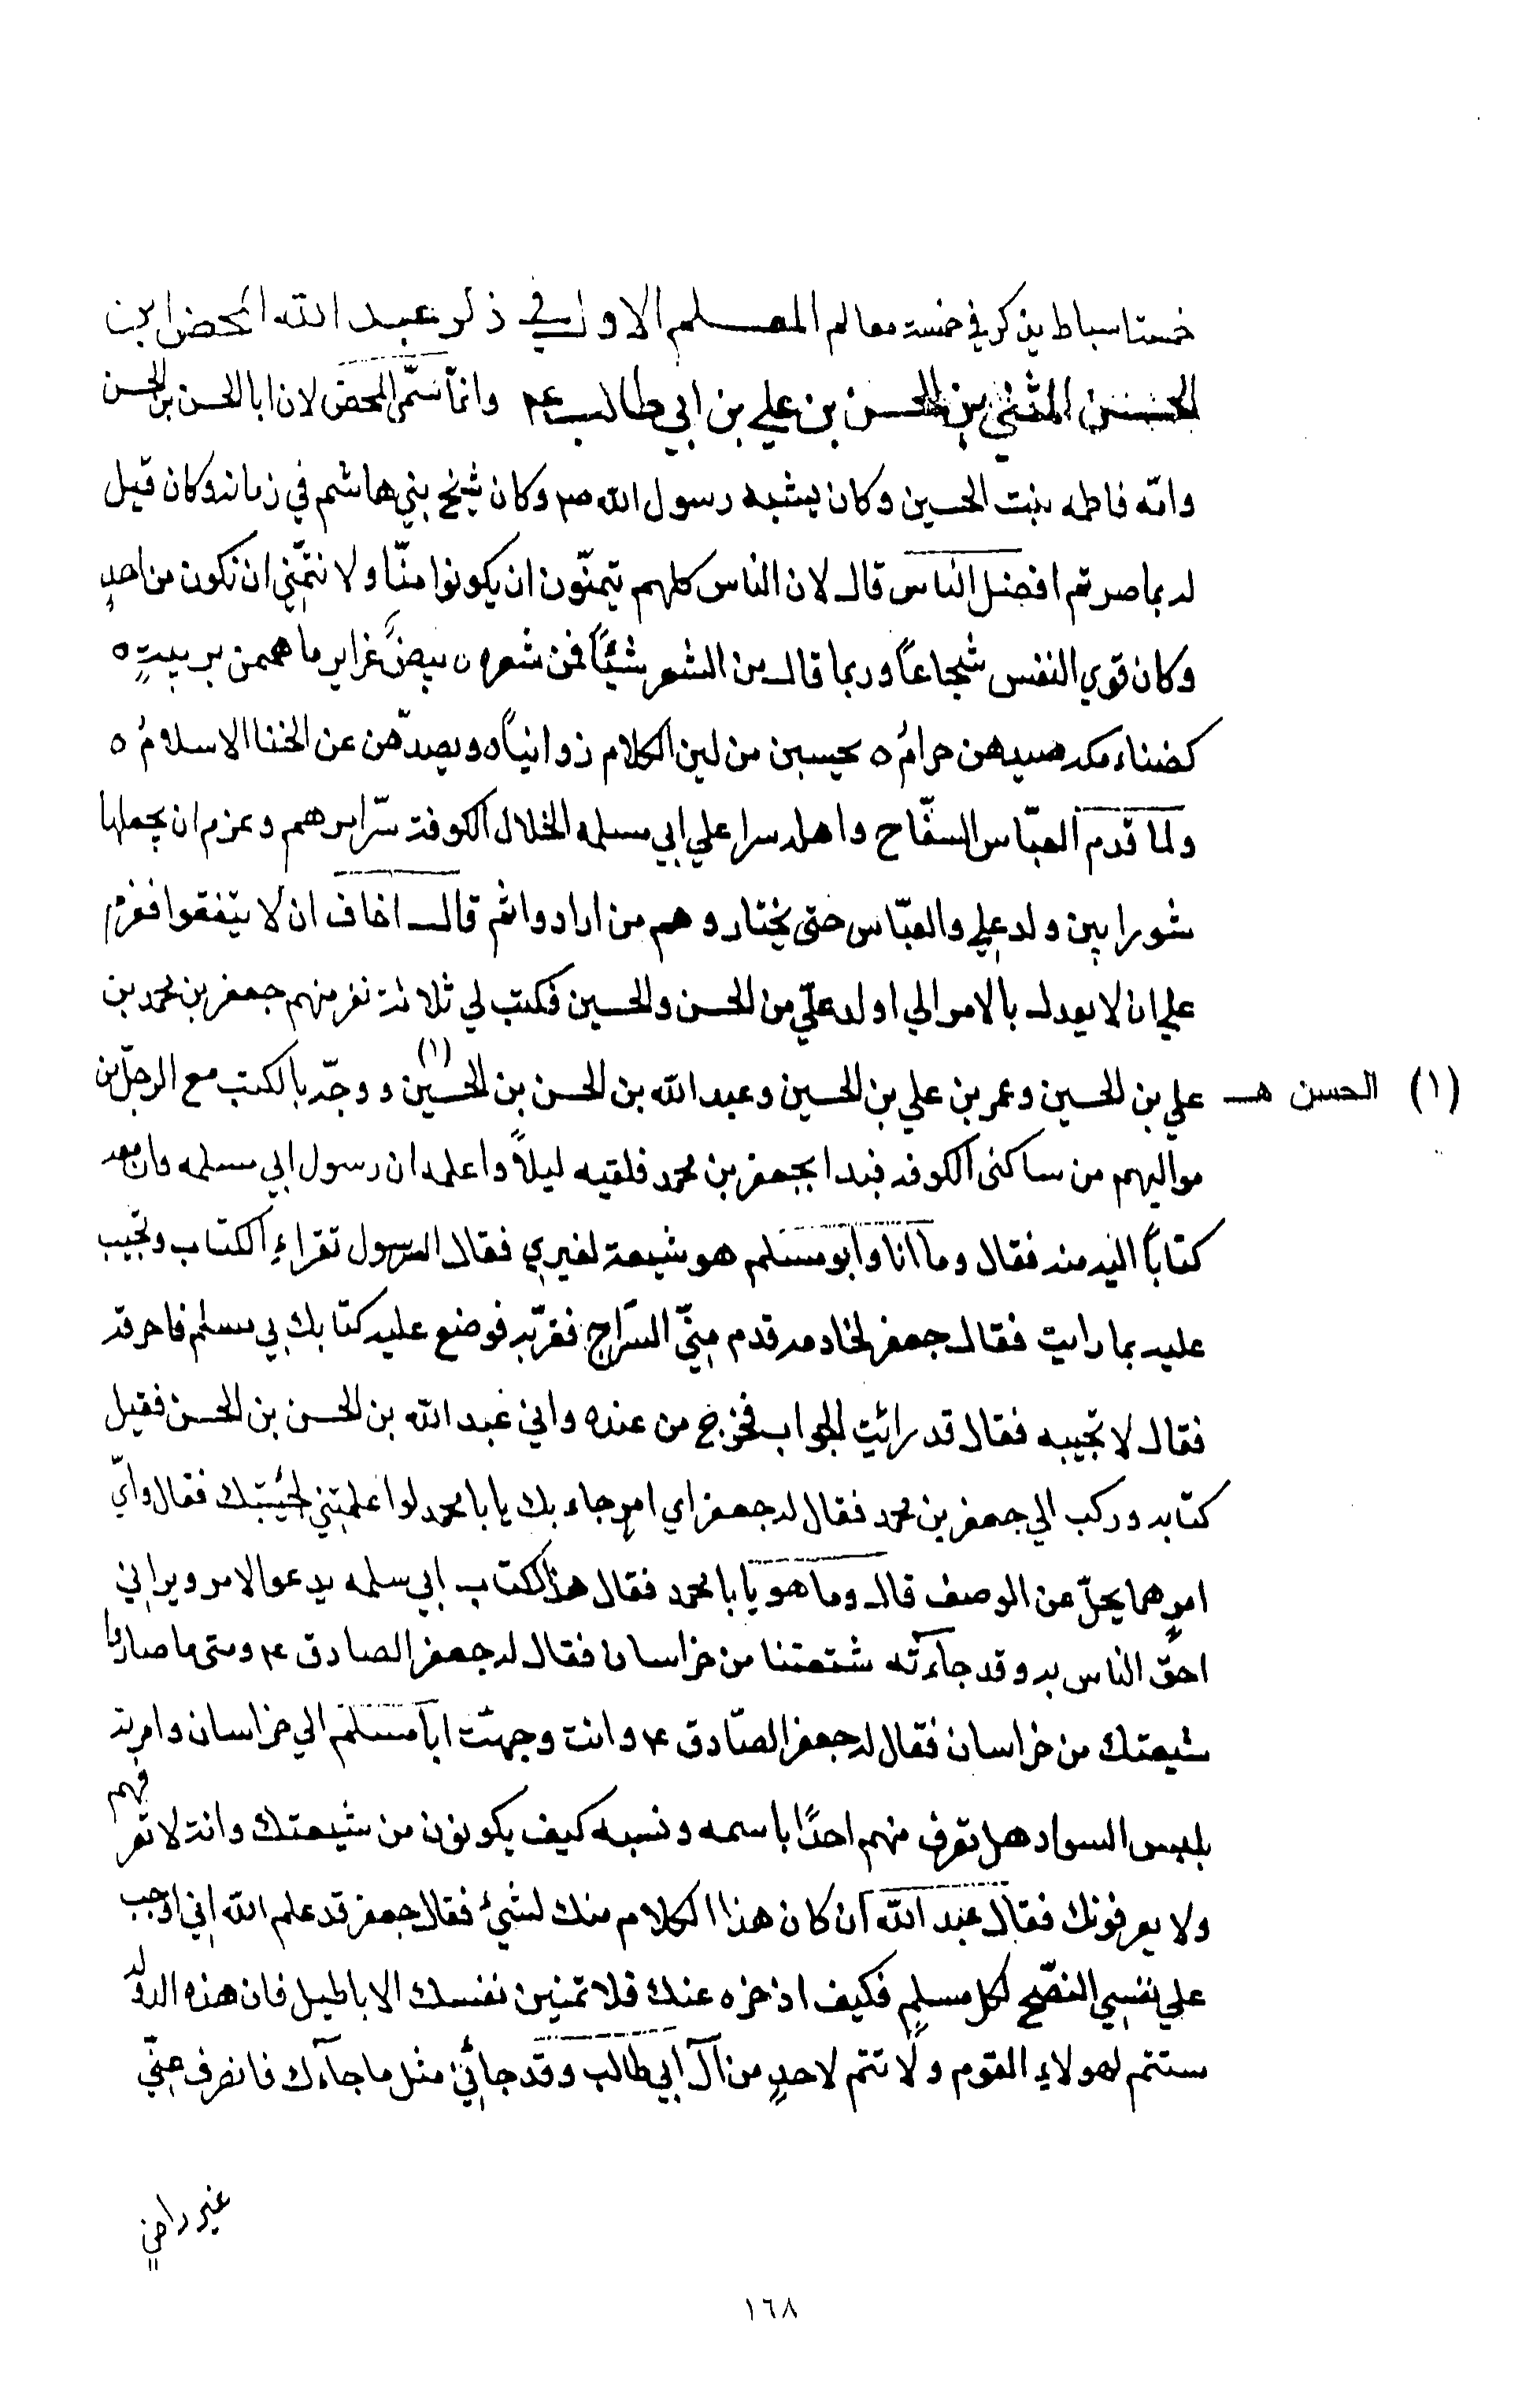 خمستا سباط يذكر في خمسة معالم المعلم الاول في ذكر عبد الله المحض ابن
الحسن المثنى بن الحسن بن علي بن ابي طالب عم وانما سمّى المحض لان ابا الحسن بن الحسن
وامّه فاطمه بنت الحسين وكان يشبه رسول الله صم وكان شيخ بني هاشم في زمانه وكان قيل
له بما صرتم افضل الناس قال لان الناس كلهم يتمنّون ان يكونوا منّا ولا نتمنّي ان نكون من احدٍ
وكان قوي النفس شجاعاً وربما قال من الشعر شيئاً فمن شعره ه بيضٌ غراير ما هممن بريبةٍ ه
كضباء مكه صيدهن حرامُ ه يحسبن من لين الكلام زوانياً ه ويصدّهن عن الخنا الاسلامُ ه
ولما قدم العبّاس السفّاح واهله سرا علي ابي مسلمه الخلال الكوفة سّرا مرهم وعزم ان يجعلها
شورا بين ولد علي والعبّاس حتى يختاروهم من ارادوا ثم قال اخاف ان لا يتفقوا فعزم
علي ان لا يعدل بالامر الي اولد عليّ من الحسن والحسين فكتب لي ثلاثة نفر منهم جعفر بن محمد بن
علي بن الحسين وعمر بن علي بن الحسين وعبد الله بن الحسن بن الحسين (١) ووجّه بالكتب مع الرجل من
(١) الحسن هـ
مواليهم من ساكنى الكوفه فبدا بجعفر بن محمد فلقيه ليلاً واعلمه ان رسول ابي مسلمه وان معه
كتاباً اليه منه فقال وما انا وابو مسلم هو شيعة لغيري فقال الرسول تقراء الكتاب وتجيب
عليه بما رايت فقال جعفر لخادمه قدم منّي السّراج فقرّبه فوضع عليه كتابك بي مسلم فاحرقه
فقال لا تجيبه فقال قد رائيت الجواب فخرج من عنده واتي عبد الله بن الحسن بن الحسن فقيل
كتابه وركب الي جعفر بن محمد فقال له جعفر اي امرٍ جاء بك يا با محمد لو اعلمتني لجئيتك فقال وايّ
امرٍ هما يجلّ عن الوصف قال وما هو يا با محمد فقال هذا الكتاب ابي سلمه يدعو الامر ويراني
احقّ الناس به وقد جاءته شتعتنا من خراسان فقال له جعفر الصادق ع ومتى ما صاروا
شيعتك من خراسان فقال له جعفر الصّادق ع وانت وجهّت ابا مسلم الي خراسان وامرته
بلبس السواد هل تعرف منهم احدًا باسمه ونسبه كيف يكونون من شيعتك وانت لا تعرفهم
ولا يعرفونك فقال عبد الله ان كان هذا الكلام منك لشيئ فقال جعفر قد علم الله اني اوجب
علي نفسي النصّح لكل مسلمٍ فكيف اذخره عنك فلا تمنين نفسك الاباطيل فان هذه الدوله
ستتم لهولاء القوم ولا تتم لاحدٍ من آل ابي طالب وقد جائني مثل ما جآءك فانصرف عنّي
غير راضٍ
١٦٨